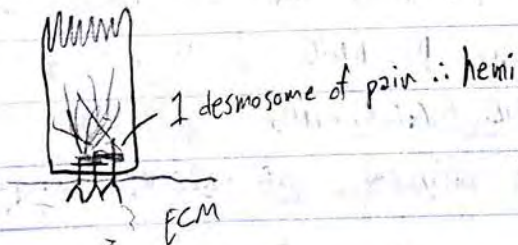 1 desmosome of pair ∴ hemi
ECM